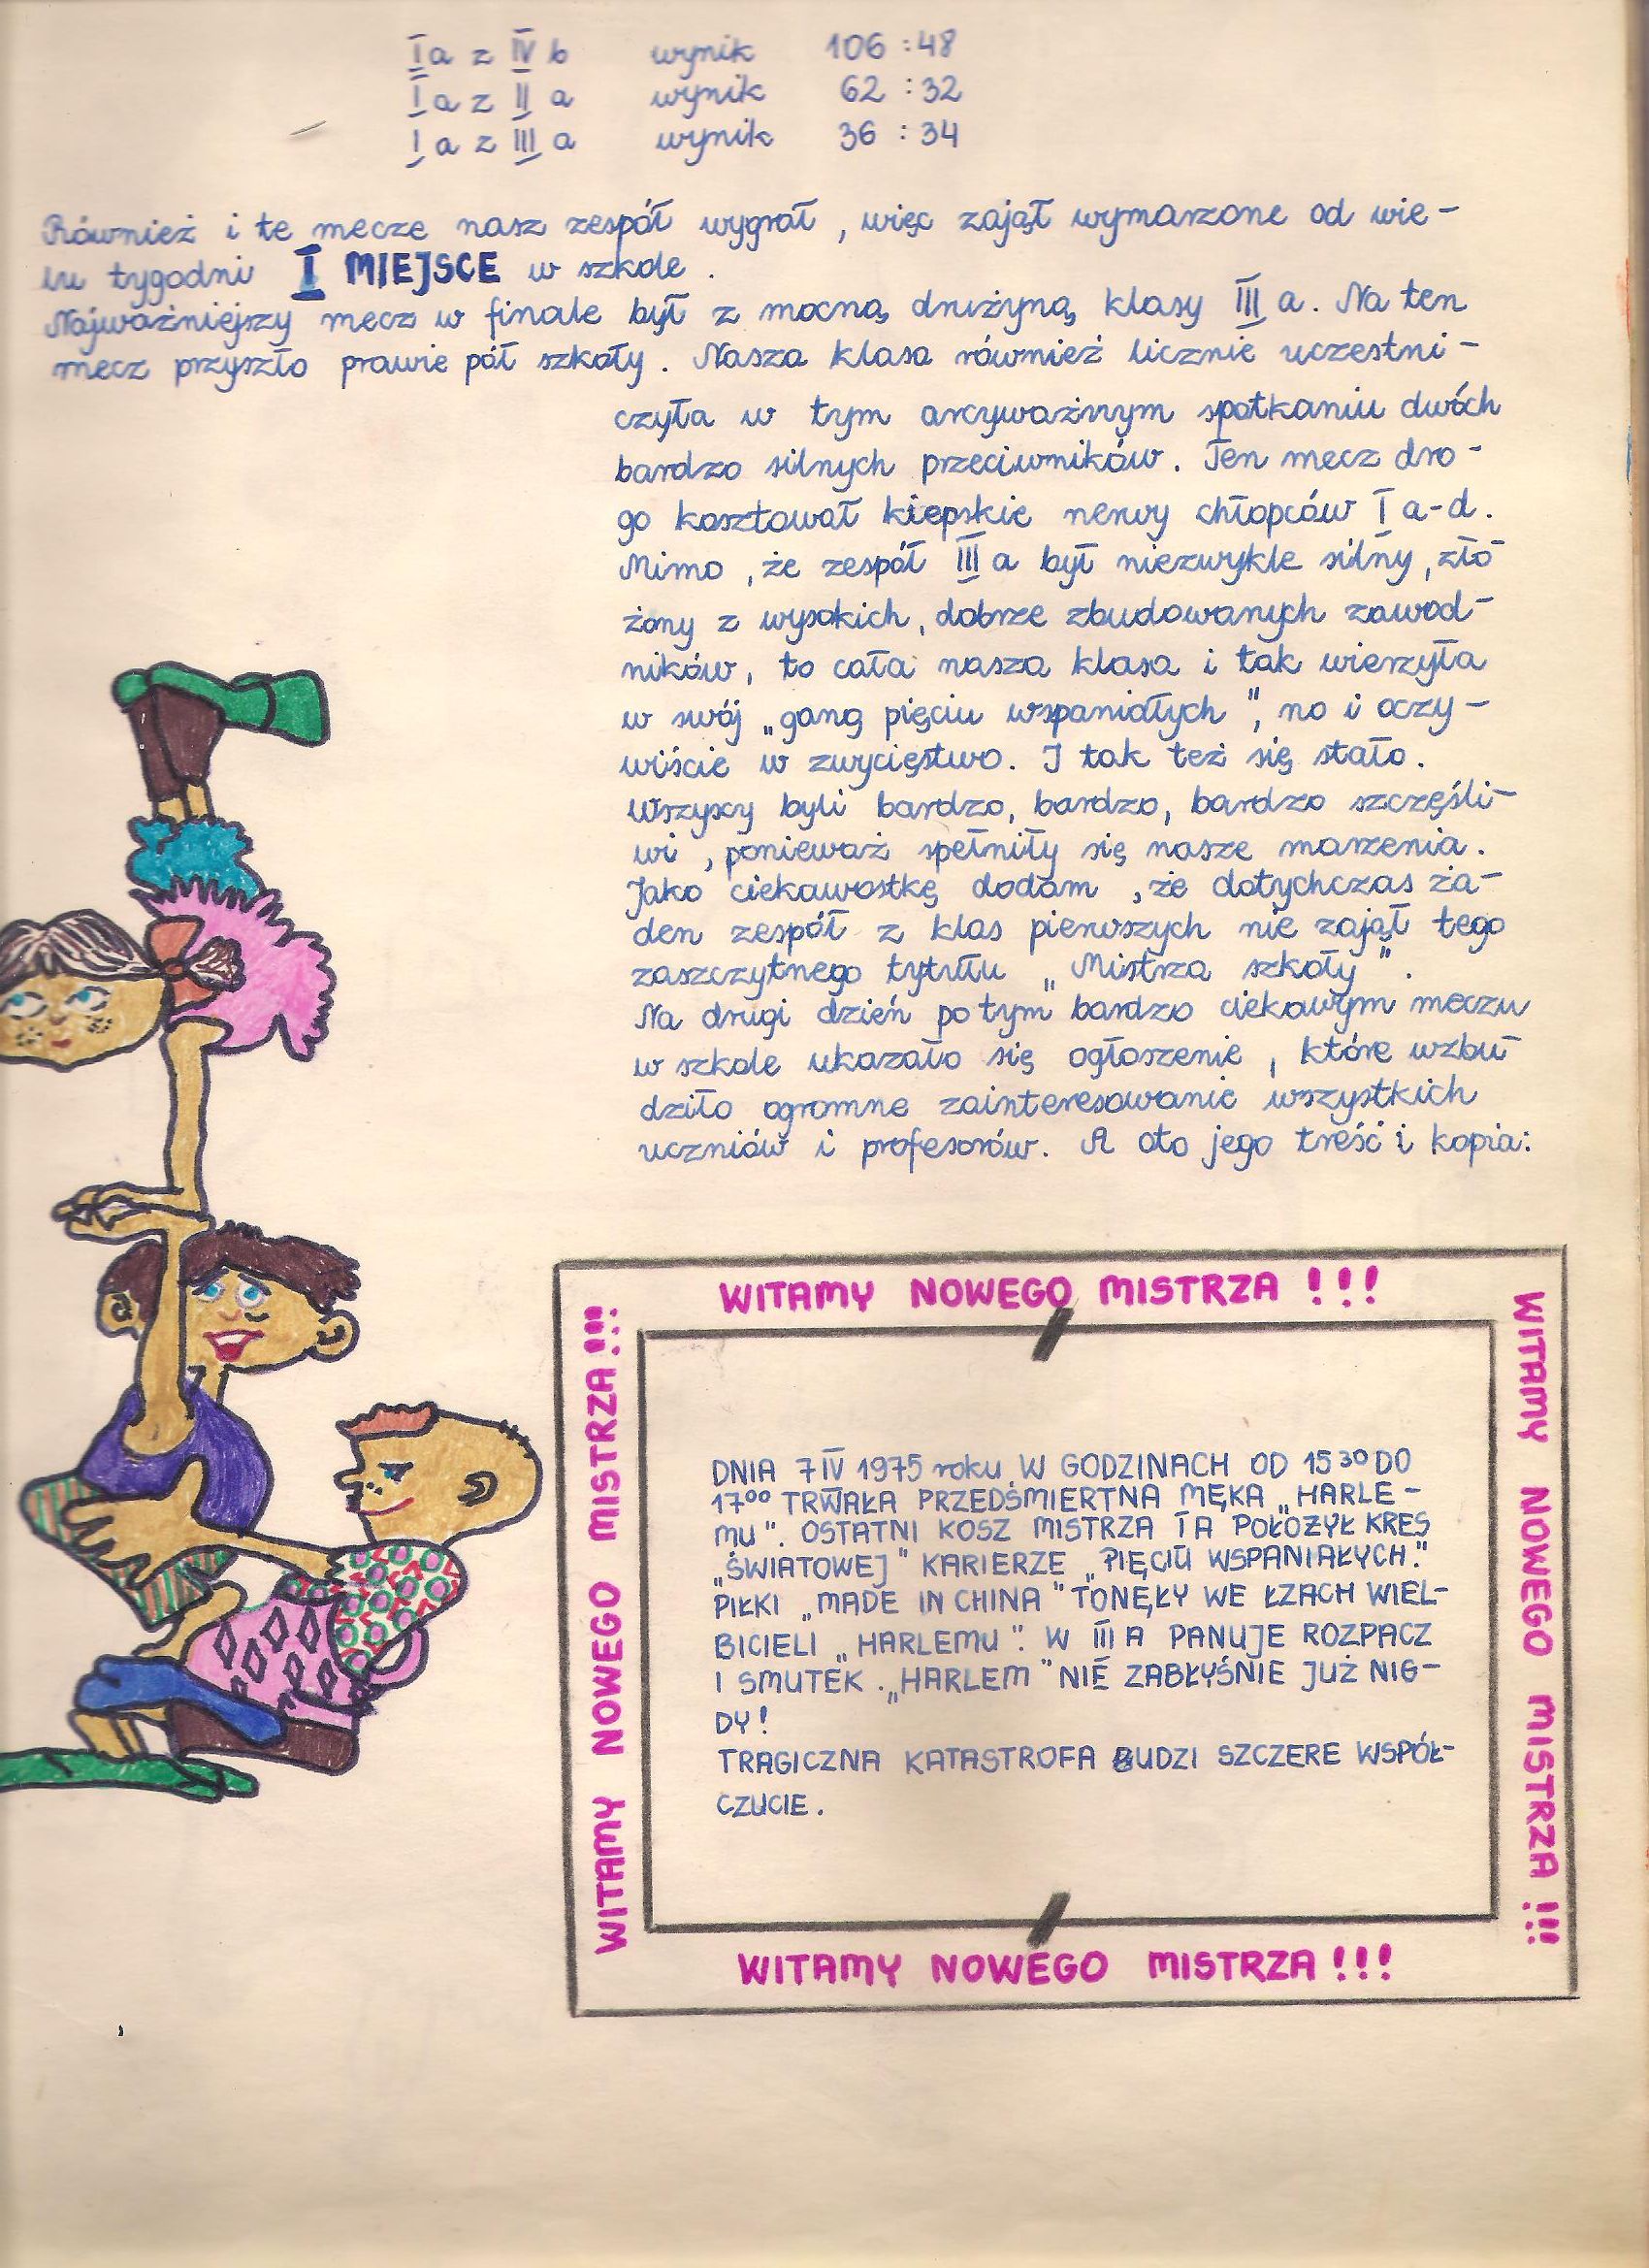 I a z IV b wynik 106 : 48
I a z II a wynik 62 : 32
I a z III a wynik 36 : 34
Również i te mecze nasz zespół wygrał , więc zajął wymarzone od wie-
lu tygodni I MIEJSCE w szkole .
Najważniejszy mecz w finale był z mocną drużyną klasy III a. Na ten
mecz przyszło prawie pół szkoły . Nasza klasa również licznie uczestni-
czyła w tym arcyważnym spotkaniu dwóch
bardzo silnych przeciwników. Ten mecz dro-
go kosztował kiepskie nerwy chłopców I a-d.
Mimo , że zespół III a był niezwykle silny , zło-
żony z wysokich, dobrze zbudowanych zawod-
ników, to cała nasza klasa i tak wierzyła
w swój „gang pięciu wspaniałych ", no i oczy-
wiście w zwycięstwo. I tak też się stało.
Wszyscy byli bardzo, bardzo, bardzo szczęśli-
wi , ponieważ spełniły się nasze marzenia .
Jako ciekawostkę dodam , że dotychczas ża-
den zespół z klas pierwszych nie zajął tego
zaszczytnego tytułu „ Mistrza szkoły ".
Na drugi dzień po tym bardzo ciekawym meczu
w szkole ukazało się ogłoszenie , które wzbu-
dziło ogromne zainteresowanie wszystkich
uczniów i profesorów. A oto jego treść i kopia:
WITAMY NOWEGO MISTRZA !!!
WITAMY NOWEGO MISTRZA !!!
WITAMY NOWEGO MISTRZA !!!
DNIA 7 IV 1975 roku W GODZINACH OD 15 30 DO
17 00 TRWAŁA PRZEDŚMIERTNA MĘKA „HARLE-
MU". OSTATNI KOSZ MISTRZA I A POŁOŻYŁ KRES
„ŚWIATOWEJ" KARIERZE „PIĘCIU WSPANIAŁYCH."
PIŁKI „MADE IN CHINA " TONĘŁY WE ŁZACH WIEL-
BICIELI „HARLEMU ". W III A PANUJE ROZPACZ
I SMUTEK . „HARLEM " NIE ZABŁYŚNIE JUŻ NIG-
DY !
TRAGICZNA KATASTROFA BUDZI SZCZERE WSPÓŁ-
CZUCIE .
WITAMY NOWEGO MISTRZA !!!